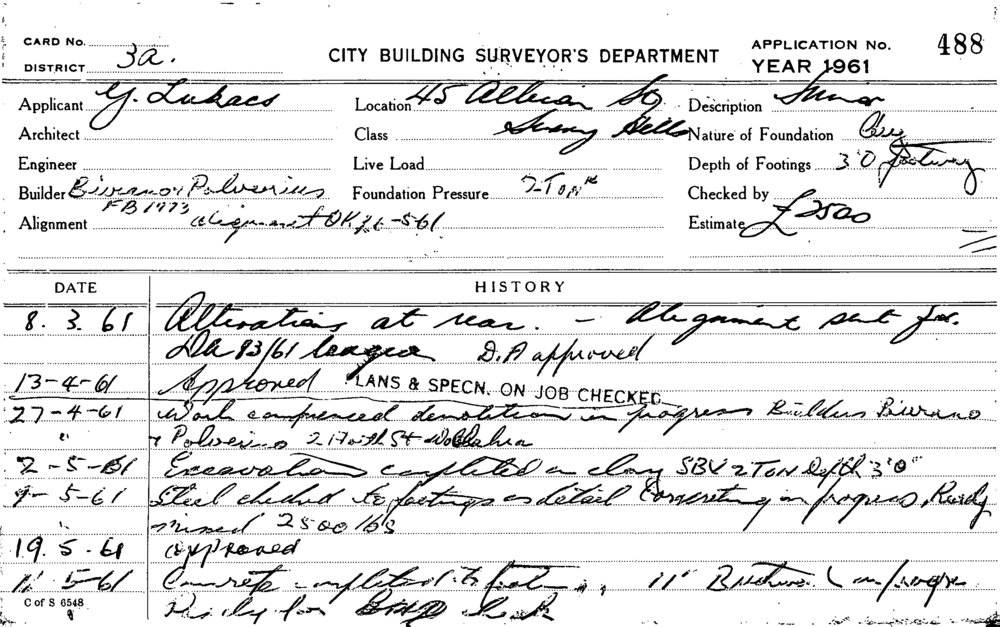 CARD No.
DISTRICT 3a.
CITY BUILDING SURVEYOR'S DEPARTMENT
APPLICATION No. 488
YEAR 1961
Applicant G. Lukacs
Location 45 Albion St
Description
Architect
Class Surry Hills
Nature of Foundation Clay
Engineer
Live Load
Depth of Footings 3'0 footway
Builder Biviano & Polverino
FB 1773
Foundation Pressure 2 Ton
Checked by
Alignment alignment OK 26-5-61
Estimate £2500
DATE HISTORY
8. 3. 61 Alterations at rear. - Alignment sent for.
DA 83/61 D.A approved
13-4-61 Approved PLANS & SPECN. ON JOB CHECKED
27-4-61 Work commenced demolition in progress Builders Biviano
" & Polverino 2 St Woollahra
2-5-61 Excavation completed on clay SBV 2 TON Depth 3'0"
9-5-61 Steel checked to footings as detail Concreting in progress, Ready
" mixed 2500 lbs
19. 5. 61 approved
11 5-61 Concrete completed to footings, 11" Brickwork in progress
Ready for
C of S 6548